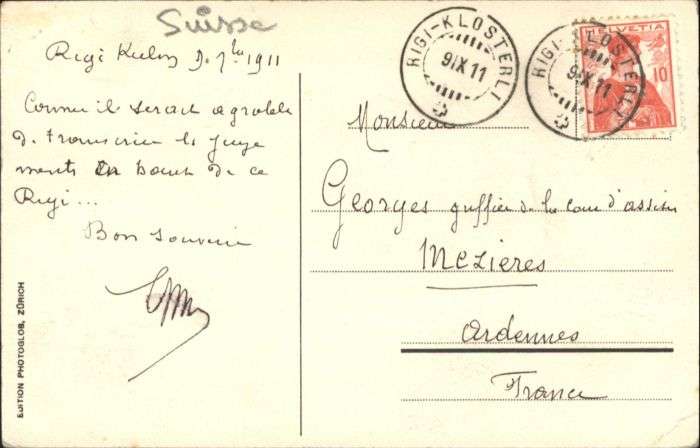 Suisse
Rigi Kulm 9. 7bre 1911
Comme il serait agréable
de transcrire les juge
ments en haut de ce
Rigi...
Bon souvenir
EDITION PHOTOGLOB, ZÜRICH
RIGI-KLOSTERLI
9IX11
HELVETIA
10
RIGI-KLOSTERLI
9IX11
Monsieur
Georges greffier de la cour d'assises
Mezières
Ardennes
France